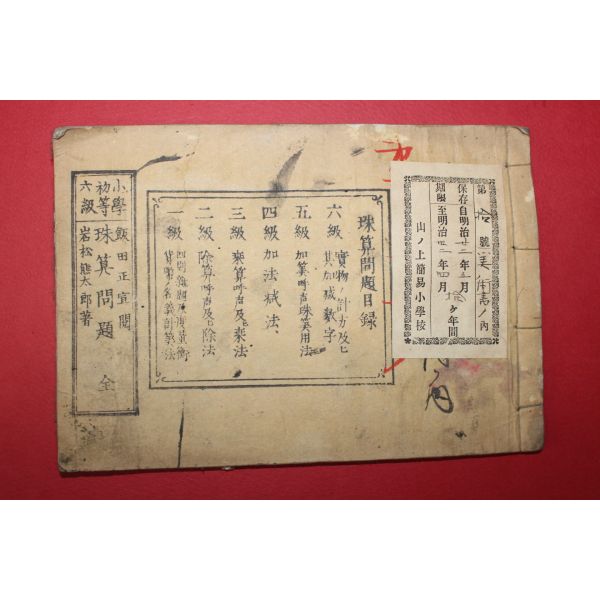 第拾號 算術書ノ内
保存自明治廿二年五月
期限至明治 年四月 ヶ年間
山ノ上簡易小學校
珠算問題目録
六級 實物ノ計方及ヒ其加減數字
五級 加算呼声珠算用法
四級 加法减法
三級 乗算呼声及ヒ乗法
二級 除算呼声及ヒ除法
一級 四則雜題度量衡貨幣ノ名義計算法
小學初等六級 飯田正宣閲
珠算問題 全
岩松熊太郎著